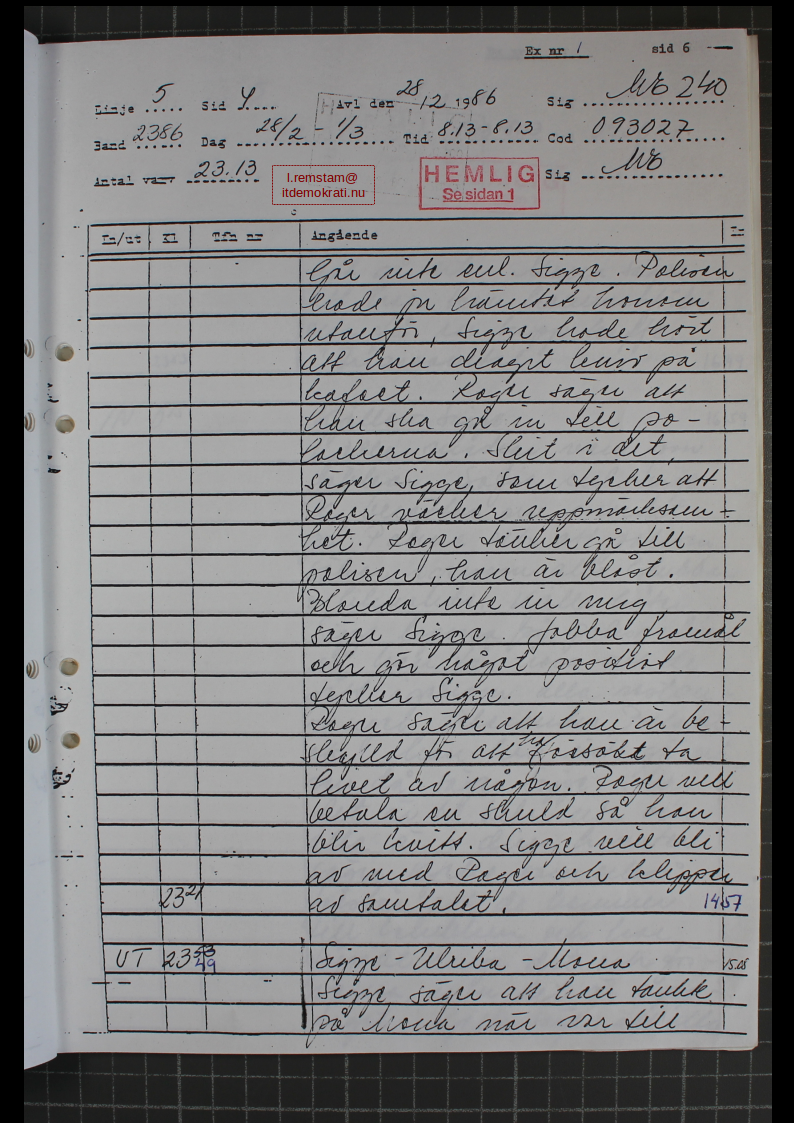 Ex nr 1 sid 6
Linje 5 Sid 4 Avl den 28/12 1986 Sig MG 240
Band 2386 Dag 28/2 - 1/3 Tid 8.13-8.13 Cod 093027
Antal varv 23.13 Sig MG
l.remstam@
itdemokrati.nu
HEMLIG
Se sidan 1
In/ut Kl Tfn nr Angående In
Går inte enl. Sigge. Polisen
hade ju hämtat honom
utanför, Sigge hade hört
att han dragit kniv på
kafeet. Roger säger att
han ska gå in till po-
lackerna. Skit i det,
säger Sigge, som tycker att
Roger väcker uppmärksam-
het. Roger tänker gå till
polisen, han är blåst.
Blanda inte in mig,
säger Sigge. Jobba framåt
och gör något positivt
tycker Sigge.
Roger säger att han är be-
skylld för att ha försökt ta
livet av någon. Roger vill
betala en skuld så han
blir kvitt. Sigge vill bli
av med Roger och klipper
23 21 av samtalet. 1457
UT 23 53 49 Sigge - Ulrika - Mona 15.08
Sigge säger att han tänkt
på Mona när var till